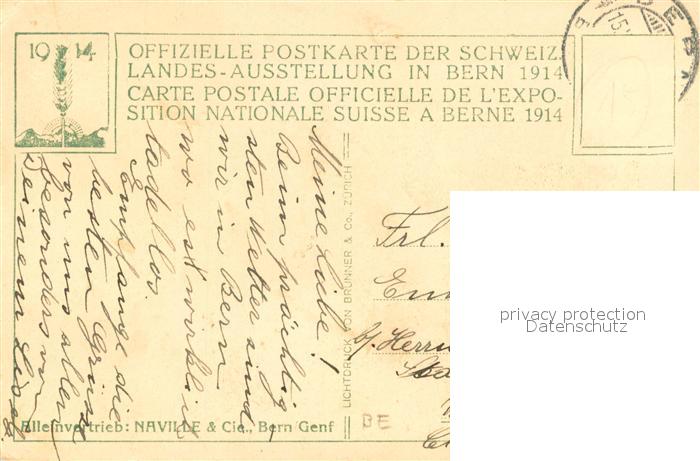 1914
OFFIZIELLE POSTKARTE DER SCHWEIZ.
LANDES-AUSSTELLUNG IN BERN 1914
CARTE POSTALE OFFICIELLE DE L'EXPO-
SITION NATIONALE SUISSE A BERNE 1914
Meine Liebe!
Beim prächtig
sten Wetter sind
wir in Bern
wo es wirklich
tadellos.
Empfange die
besten Grüsse
von uns allen
besonders von
Deinem
LICHTDRUCK VON BRUNNER & Co., ZÜRICH
Frl.
b/ Herrn
BE
privacy protection
Datenschutz
Alleinvertrieb: NAVILLE & Cie., Bern Genf